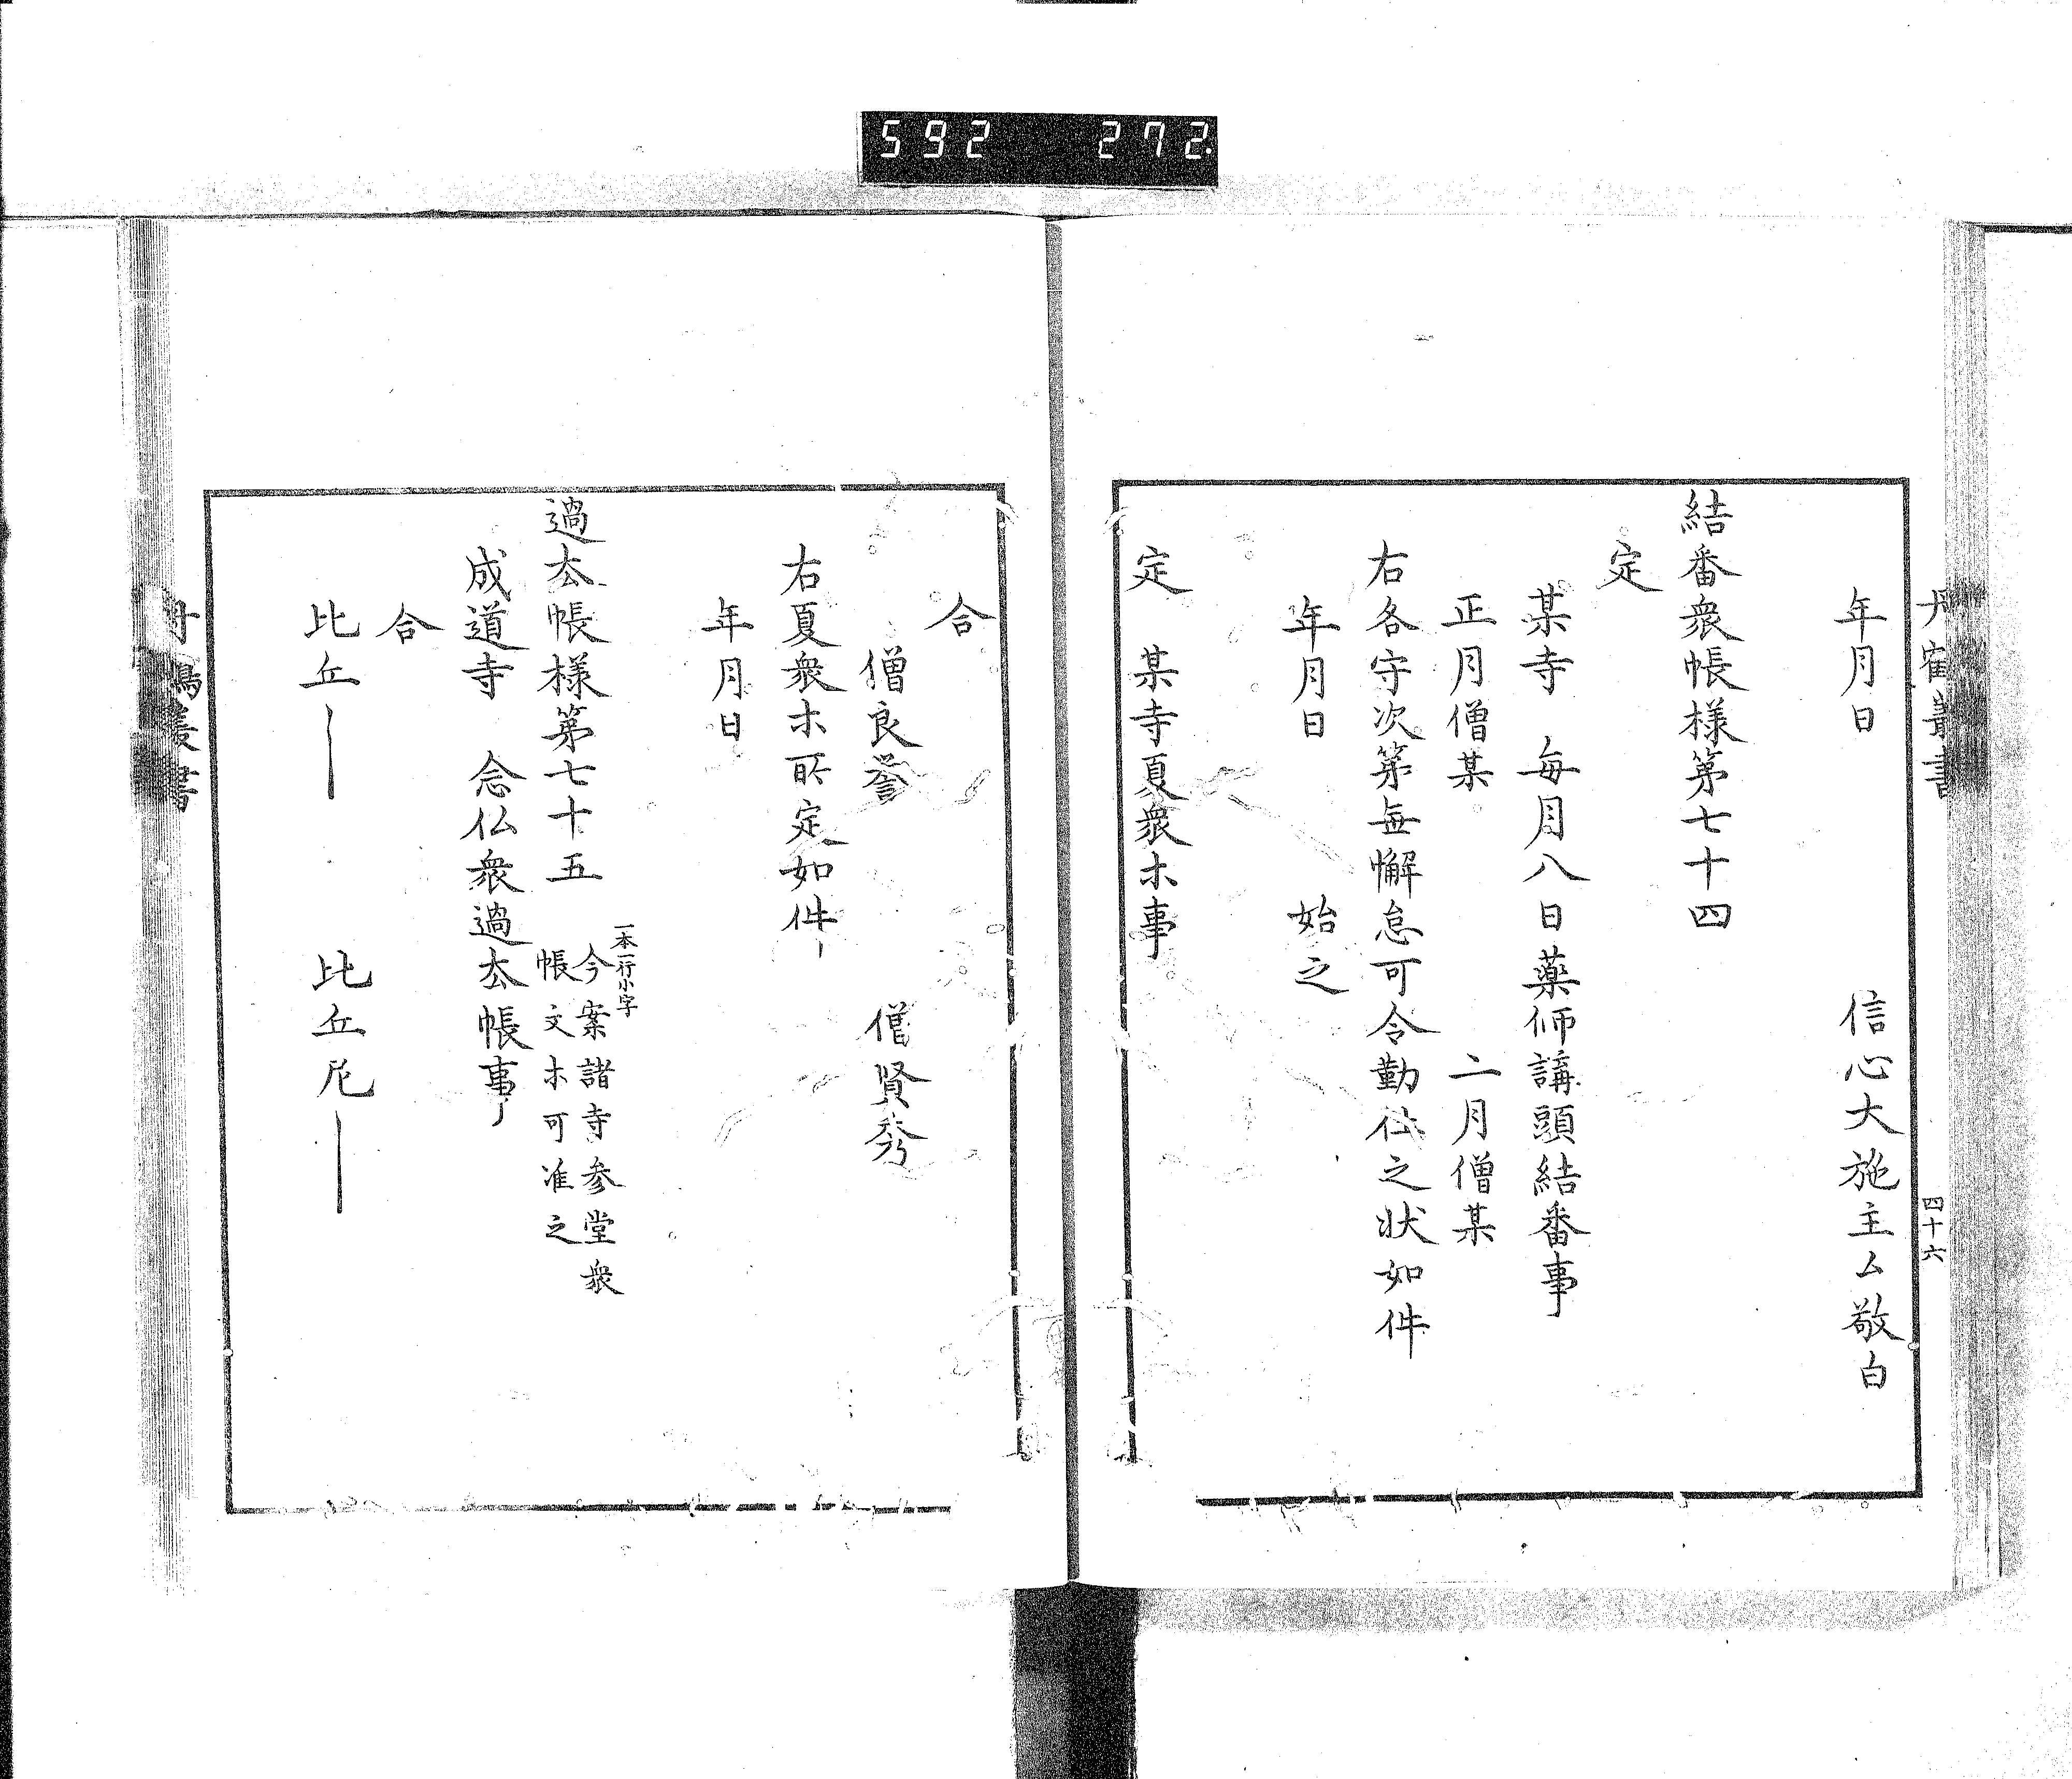 592 272.
丹鶴叢書
四十六
年月日 信心大施主厶敬白
結番衆帳様第七十四
定
某寺 毎月八日薬師講頭結番事
正月僧某 二月僧某
右各守次第無懈怠可令勤仕之状如件
年月日 始之
定 某寺夏衆木事
合
僧良誉 僧賢秀
右夏衆木所定如件
年月日
過去帳様第七十五
一本一行小字
今案諸寺参堂衆
帳文木可准之
成道寺 念仏衆過去帳事
合
比丘― 比丘尼―
丹鶴叢書